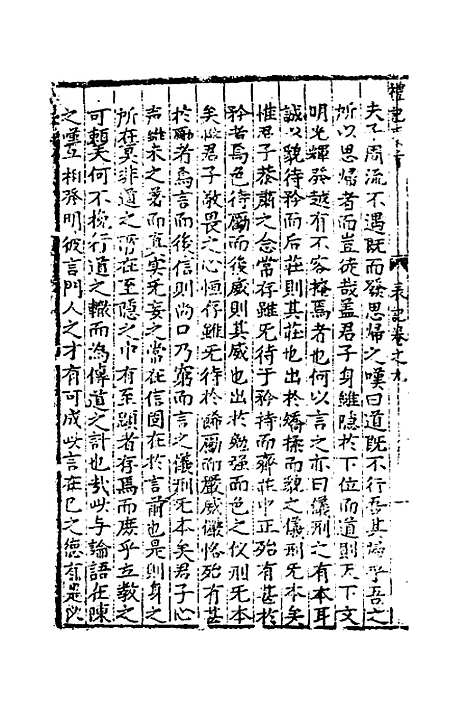 夫子周流不遇既而發思帰之嘆曰道既不行吾其歸乎吾之
所以思帰者而豈徒哉盖君子身雖隐於下位而道則天下文
明光輝發越有不容掩焉者也何以言之亦曰儀刑之有本耳
誠以貌待矜而后莊則其莊也出於矯揉而貌之儀刑无本矣
惟君子恭肅之念常存雖无待于矜持而齊莊中正殆有甚於
矜者焉色待厲而後威則其威也出於勉强而色之仪刑无本
矣惟君子敬畏之心恒存雖无待於餙厲而嚴威儼恪殆有甚
於厲者焉言而後信則尚口乃窮而言之儀刑无本矣君子心
声雖未之署而真实无妄之常在信固在於言前也是則身之
所在莫非道之所在至隐之中有至顕者存焉而庶乎立教之
可頼矣何不挽行道之轍而為傳道之計也哉此与論語在陳
之嘆互相發明彼言門人之才有可成此言在己之德有是以
表記卷之九